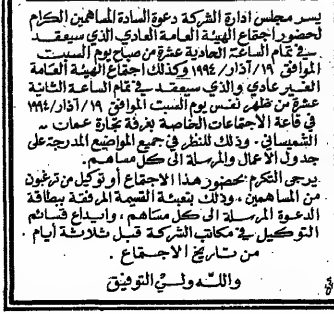 يسر مجلس ادارة الشركة دعوة السادة المساهمين الكرام
لحضور اجتماع الهيئة العامة العادي الذي سيعقد
في تمام الساعة الحادية عشرة من صباح يوم السبت
الموافق ١٩/آذار/١٩٩٤ وكذلك اجتماع الهيئة العامة
الغير عادي والذي سيعقد في تمام الساعة الثانية
عشرة من ظهر نفس يوم السبت الموافق ١٩/آذار/١٩٩٤
في قاعة الاجتماعات الخاصة بغرفة تجارة عمان -
الشميساني . وذلك للنظر في جميع المواضيع المدرجة على
جدول الأعمال والمرسلة الى كل مساهم .
يرجى التكرم بحضور هذا الاجتماع أو توكيل من ترغبون
من المساهمين ، وذلك بتعبئة القسيمة المرفقة ببطاقة
الدعوة المرسلة الى كل مساهم ، وايداع قسائم
التوكيل في مكاتب الشركة قبل ثلاثة أيام .
من تاريخ الاجتماع .
والله ولي التوفيق